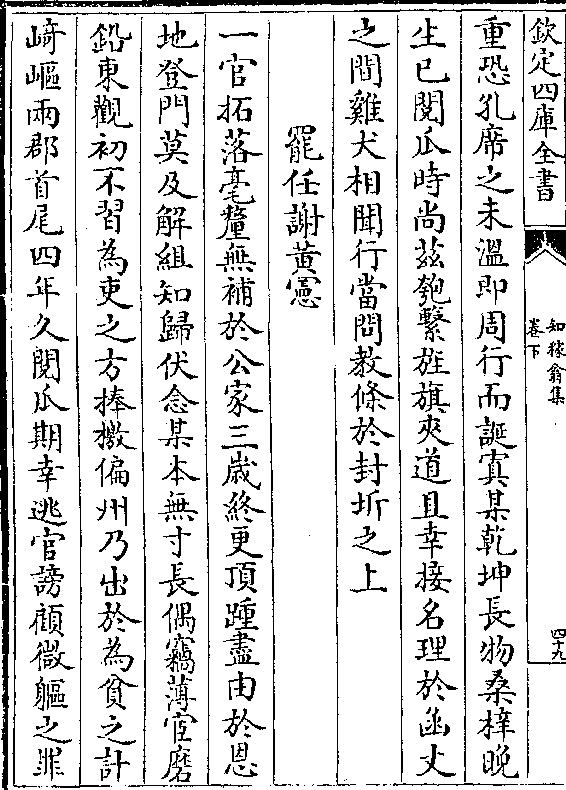 欽定四庫全書
知稼翁集
卷下
四十九
重恐孔席之未溫即周行而誕寘某乾坤長物桑梓晚
生已閱瓜時尚茲匏繫旌旗夾道且幸接名理於函丈
之間雞犬相聞行當問教條於封圻之上
罷任謝黃憲
一官拓落毫釐無補於公家三歲終更頂踵盡由於恩
地登門莫及解組知歸伏念某本無寸長偶竊薄宦磨
鉛東觀初不習為吏之方捧檄偏州乃出於為貧之計
﨑嶇兩郡首尾四年久閱瓜期幸逃官謗顧微軀之罪